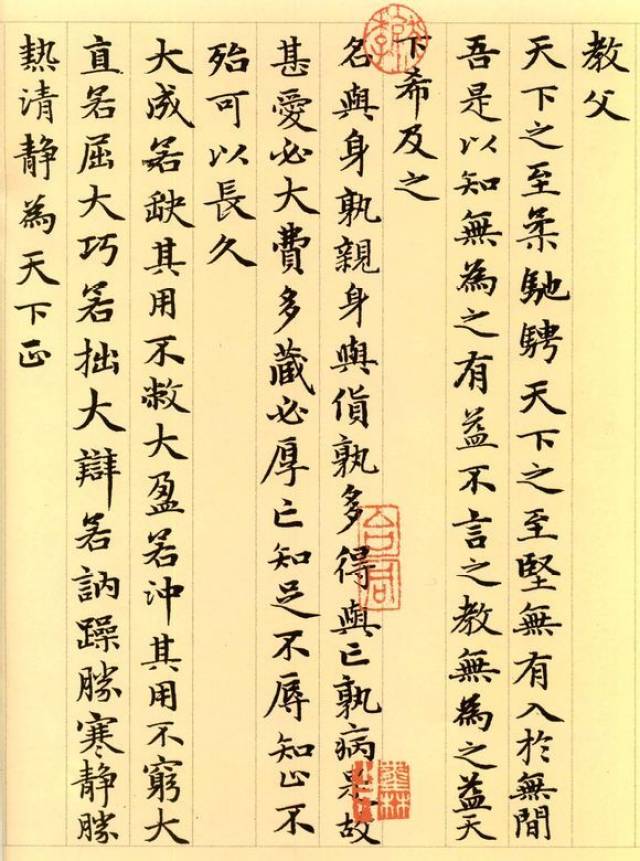 教父
天下之至柔馳騁天下之至堅無有入於無間
吾是以知無為之有益不言之教無為之益天
下希及之
名與身孰親身與貨孰多得與亡孰病是故
甚愛必大費多藏必厚亡知足不辱知止不
殆可以長久
大成若缺其用不敝大盈若沖其用不窮大
直若屈大巧若拙大辯若訥躁勝寒靜勝
熱清靜為天下正